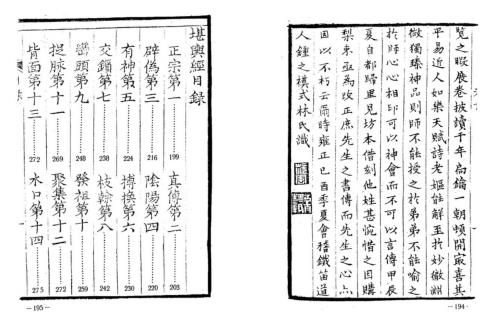 覽之暇展卷披讀千年扃鑰一朝頓開最喜其
平易近人如樂天賦詩老嫗能解至於妙徹淵
微獨臻神品則師不能授之於弟弟不能喻之
於師心心相印可以神會而不可以言傳甲辰
夏自都歸里見坊本借刻他姓甚惋惜之因購
梨棗亟為改正庶先生之書傳而先生之心亦
因以不朽云爾時雍正己酉季夏會稽鐵笛道
人鍾之模式林氏識
—194—
堪輿經目錄
正宗第一……199 真傳第二……203
辟偽第三……216 陰陽第四……220
有神第五……224 摶換第六……230
交鎖第七……238 枝幹第八……242
巒頭第九……248 發祖第十……259
捉脉第十一……269 聚集第十二……272
背面第十三……272 水口第十四……275
—195—